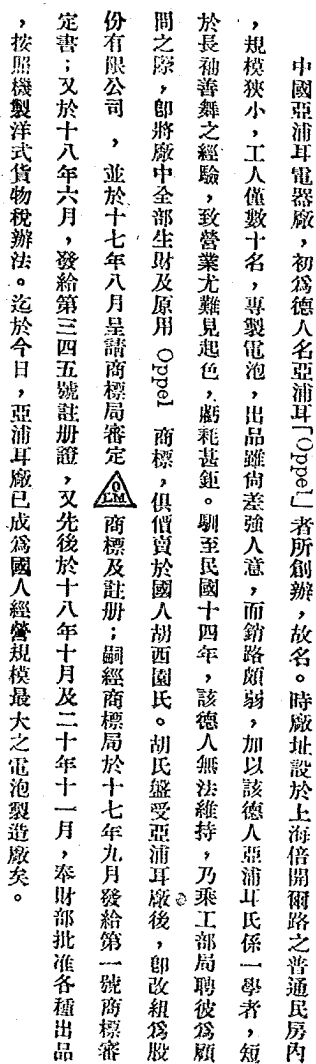 中國亞浦耳電器廠，初爲德人名亞浦耳「Oppel」者所創辦，故名。時廠址設於上海倍開爾路之普通民房內
，規模狹小，工人僅數十名，專製電泡，出品雖尙差強人意，而銷路頗弱，加以該德人亞浦耳氏係一學者，短
於長袖善舞之經驗，致營業尤難見起色，虧耗甚鉅。馴至民國十四年，該德人無法維持，乃乘工部局聘彼爲顧
問之際，卽將廠中全部生財及原用 Oppel 商標，俱價賣於國人胡西園氏。胡氏盤受亞浦耳廠後，卽改組爲股
份有限公司，並於十七年八月呈請商標局審定 商標及註册；嗣經商標局於十七年九月發給第一號商標審
定書；又於十八年六月，發給第三四五號註册證，又先後於十八年十月及二十年十一月，奉財部批准各種出品
，按照機製洋式貨物稅辦法。迄於今日，亞浦耳廠已成爲國人經營規模最大之電泡製造廠矣。